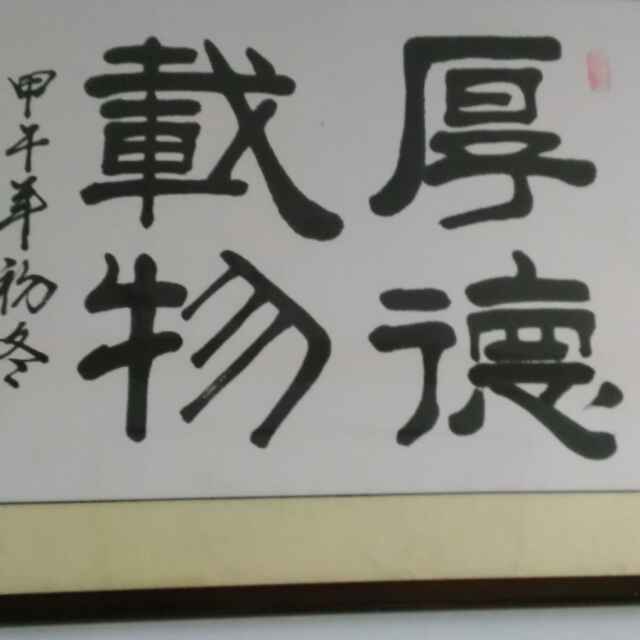 厚德
載物
甲午年初冬